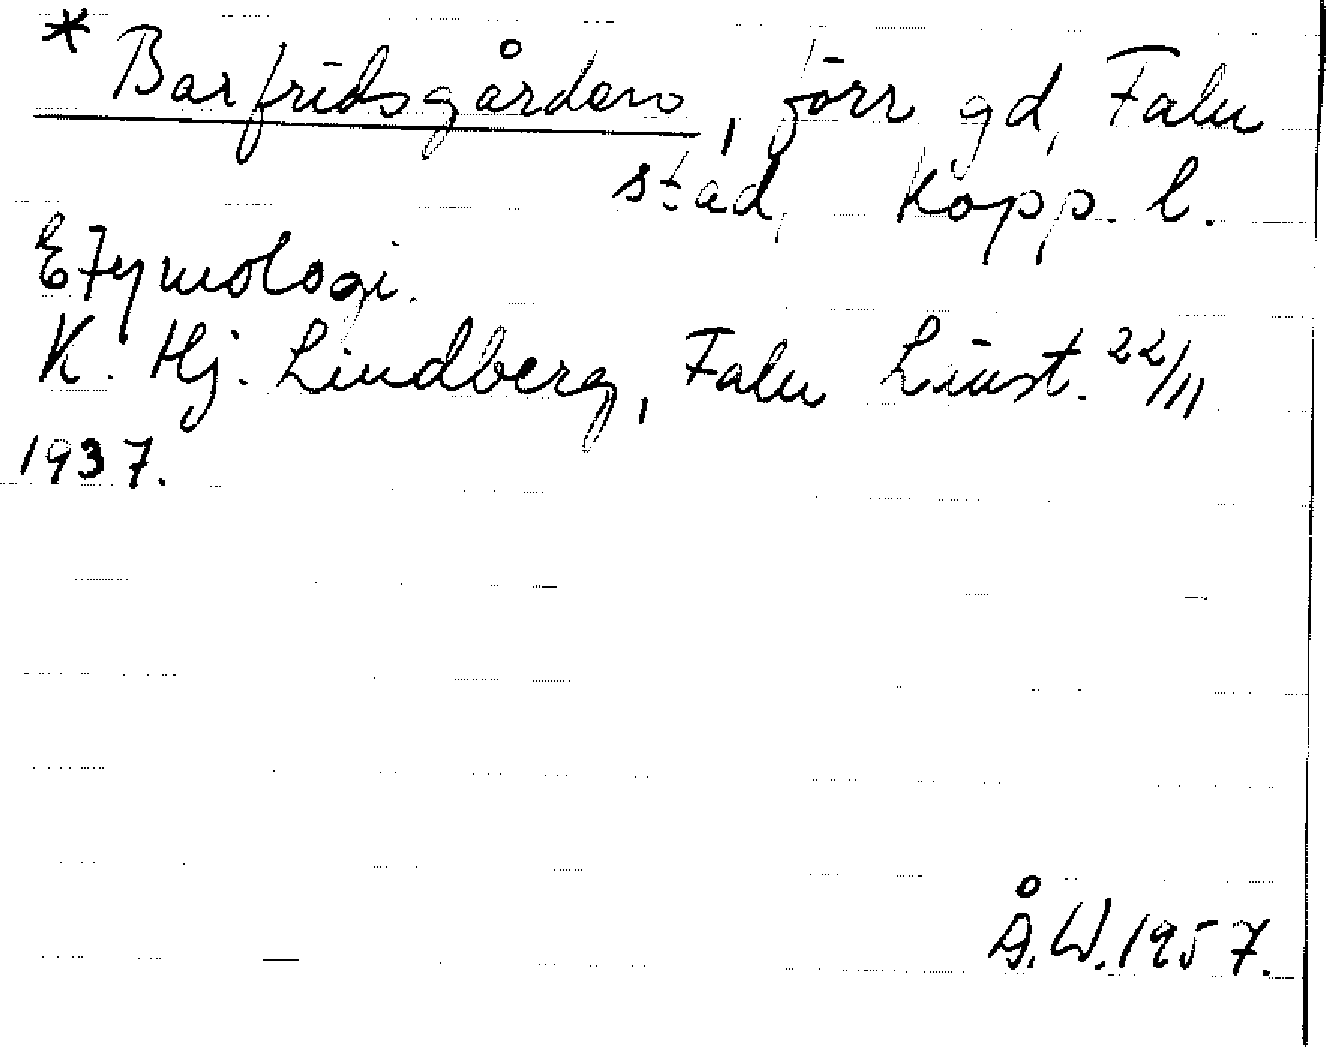 * Barfridsgården, förr gd, Falu
stad, Kopp. l.
Etymologi.
K. Hj. Lindberg, Falu Länst. 22/11
1937.
Å. W. 1957.